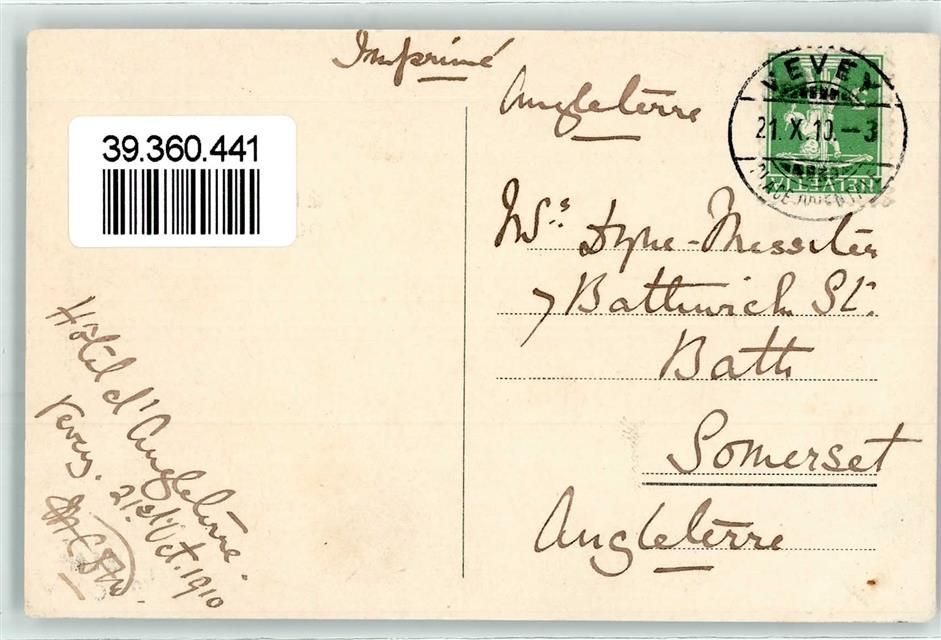 Imprimé
Angleterre
VEVEY
21. X. 10. - 3
HELVETIA
39.360.441
Mrs: Dyne-Messiter
7 Bathwick St.
Bath
Somerset
Angleterre
Hôtel d'Angleterre.
Vevey. 21st Oct. 1910